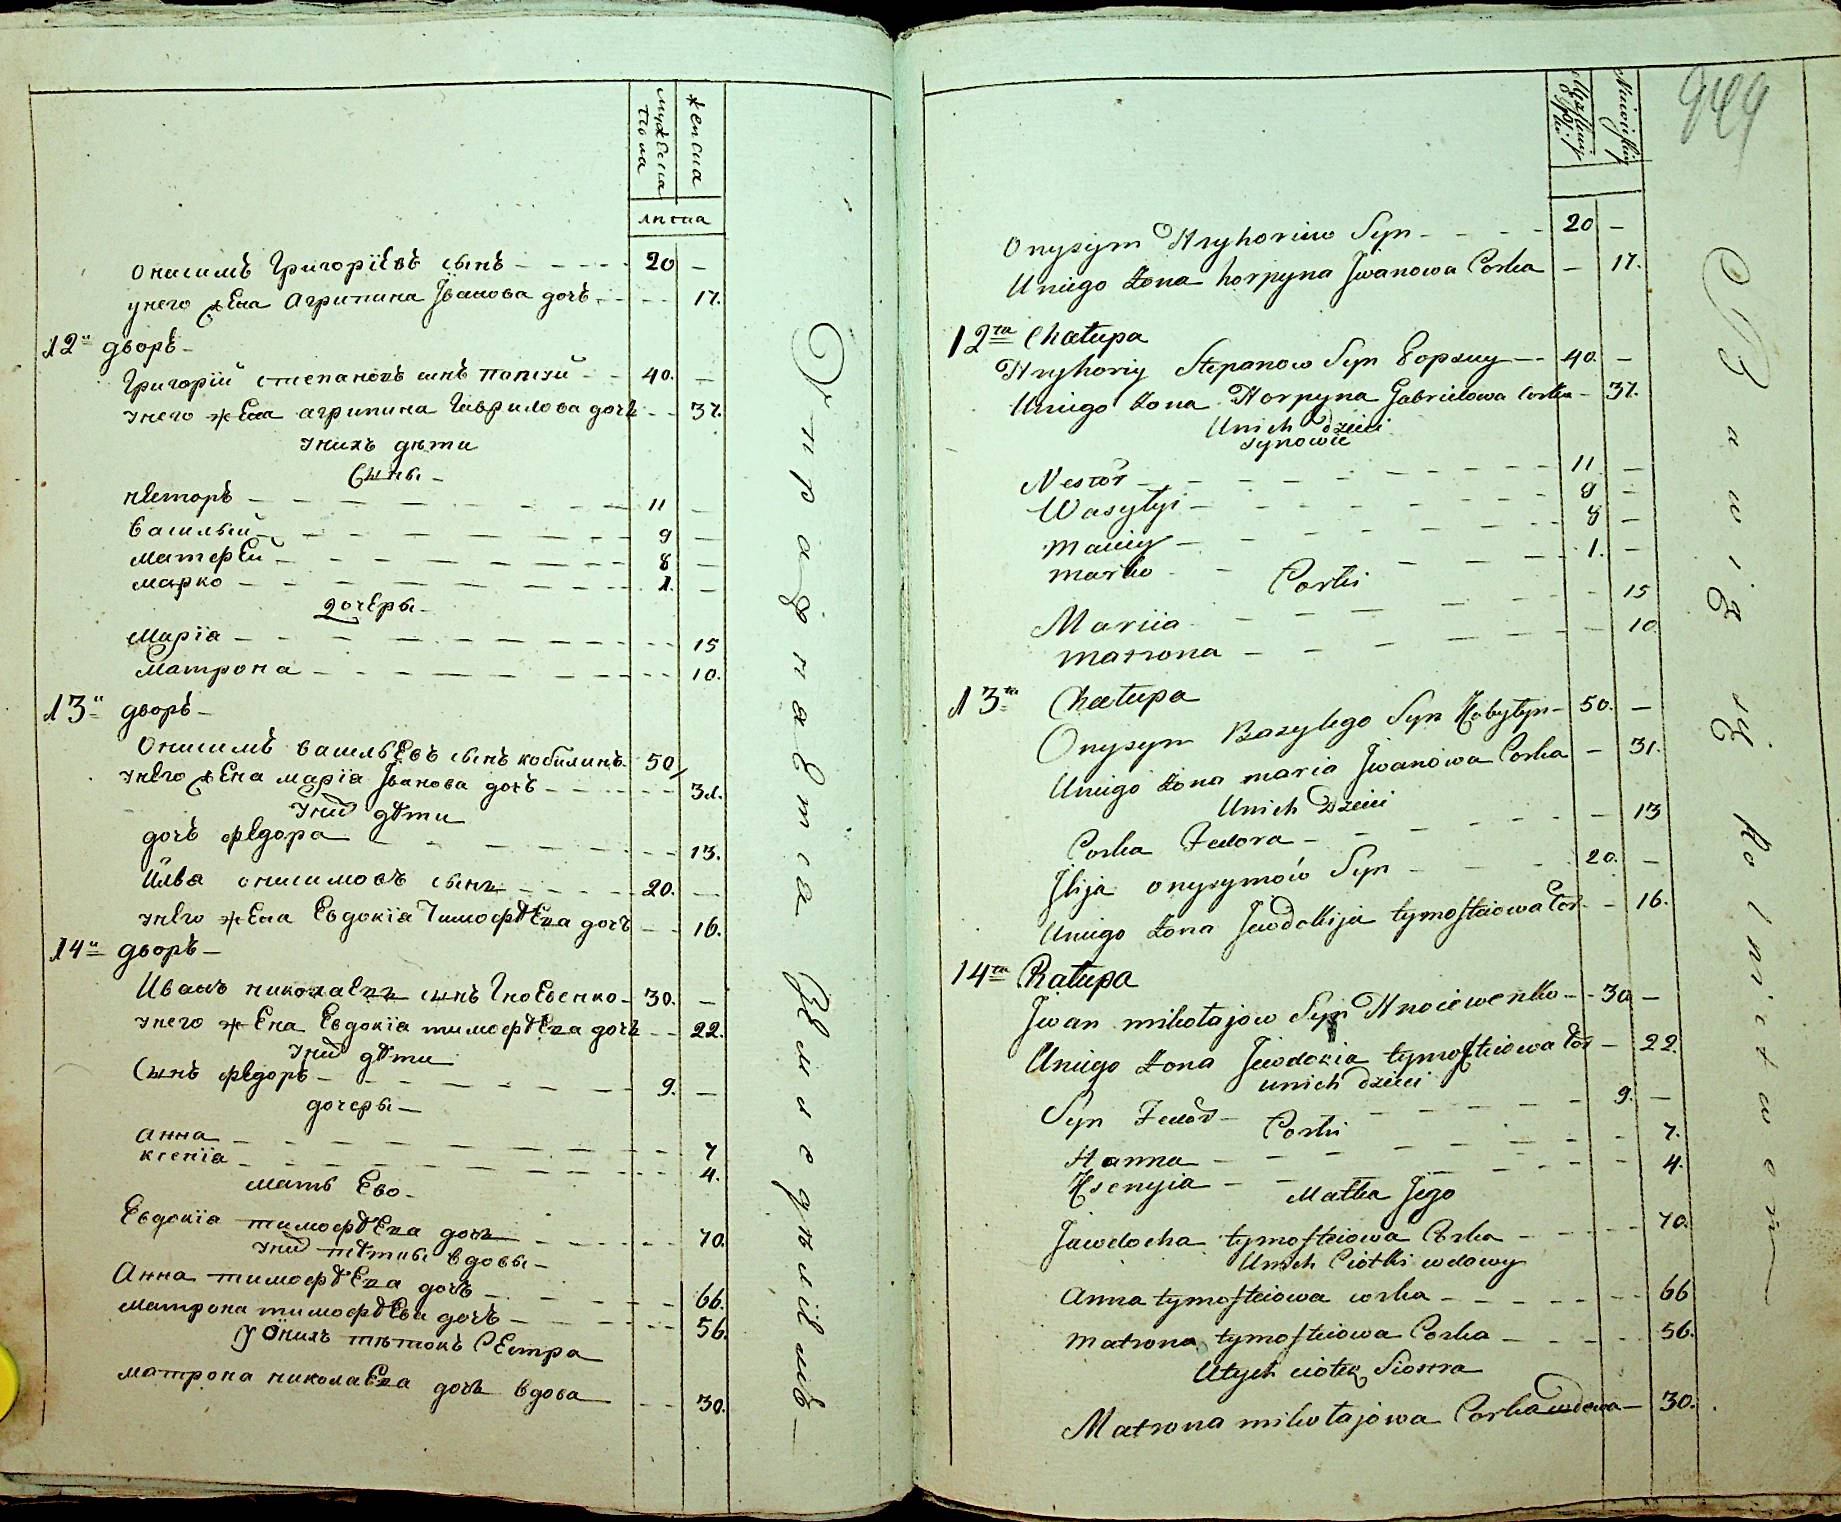 мужеска пола
женска
лѣтна
Онисимъ Григорїевъ сынъ - - - - 20 -
унего жена Агрипина Іванова дочъ - - - 17.
12й дворъ -
Григорїй степановъ синъ попсуй - - 40. -
унего жена агрипина Гаврилова дочъ - - 37.
унихъ дѣти
Сыны -
несторъ - - - - - - - - 11 -
василый - - - - - - - 9 -
матфей - - - - - - - - 8 -
марко - - - - - - - - 1. -
дочеры -
Марїа - - - - - - - - - 15
Матрона - - - - - - - - 10.
13й дворъ -
Онисимъ васильевъ сынъ кобилинъ - 50
унего жена марїа Іванова дочъ - - - - 31.
уних дѣти
дочъ федора - - - - - - - 13.
Илїа онисимовъ сынъ - - - - - 20. -
унего жена Евдокїа Тимофѣева дочъ - - 16.
14й дворъ -
Иванъ николаевъ сынъ Гноевенко - 30. -
унего жена Евдокїа тимофѣева дочъ - - 22.
уних дѣти
Сынъ федоръ - - - - - - - 9. -
дочеры -
анна - - - - - - - - - 7
ксенїа - - - - - - - - - 4.
мать Ево -
Евдокїа тимофѣева дочъ - - - - - - 70.
уних тѣтки вдовы -
Анна тимофѣева дочъ - - - - - 66.
матрона тимофѣева дочъ - - - - - 56.
у Оних тѣтокъ Сестра
матрона николаева дочъ вдова - - 30.
Упражнается Земледѣлїемъ -
949
Onyszym Hryhoriiw Syn - - - - 20 -
Uniego żona horpyna Jwanowa Corka - 17.
12ta Chałupa
Hryhoriy Stepanow Syn Popsuy - - 40. -
Uniego żona Horpyna Gabriełowa Corka - 37.
Unich dzieci
synowie
Nestor - - - - - - - 11 -
Wasylyi - - - - - - - 9 -
Maciiy - - - - - - - 8 -
marko - - - - - - 1. -
Corki
Mariia - - - - - - 15
matrona - - - - - - 10.
13ta Chałupa
Onyszym Bazylego Syn Kobyłyn - 50. -
Uniego żona maria Jwanowa Corka - 31.
Unich Dzieci
Corka Fedora - - - - - - 13
Jlija onysymow Syn - - - 20. -
Uniego żona Jewdokija tymofteiowa Cor - - 16.
14ta Kałupa
Jwan mikołajow Syn Hnoiewenko - - 30 -
Uniego żona Jewdokia tymofteiowa Cor - 22.
unich dzieci
Syn Fedor - - - - - 9. -
Corki
Hanna - - - - - - 7.
Ksenyia - - - - - - 4.
Matka Jego
Jawdocha tymofteiowa Corka - - - - 70.
Unich Ciotki wdowy
Anna tymofteiowa corka - - - - - - 66
matrona tymofteiowa Corka - - - - 56.
Utych ciotek Siostra
Matrona mikołajowa Corka wdowa - 30.
Bawią się Rolnictwem -